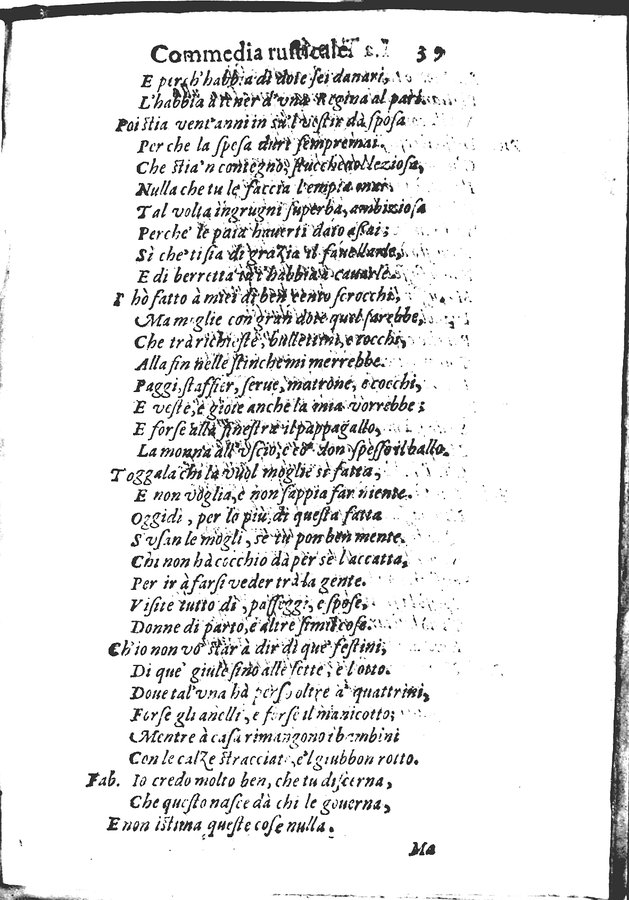 Commedia rusticale. 39
E perch'habbia di dote sei danari,
L'habbia à tener d'vna Regina al pari.
Poi stia vent'anni in su'l vestir dà sposa
Perche la spesa duri sempremai.
Che stia'n contegno, stucchevol leziosa,
Nulla che tu le faccia l'empia mai.
Tal volta ingrugni superba, ambiziosa
Perche' le paia hauerti dato assai;
Sì che ti sia di grazia il fauellarle,
E di berretta tu l'habbia à cauarle.
I hò fatto à miei dì ben cento scrocchi,
Ma moglie con gran dote quel farebbe,
Che trà richieste, bullettini, e tocchi,
Alla fin nelle stinche mi merrebbe.
Paggi, staffier, serue, matrone, e cocchi,
E veste, e gioie anche la mia vorrebbe;
E forse alla finestra il pappagallo,
La monna all'vscio, e co' don spesso il ballo.
Toggala chi la vuol moglie sì fatta,
E non voglia, e non sappia far niente.
Oggidì, per lo più, di questa fatta
S'vsan le mogli, se tu pon ben mente.
Chi non hà cocchio dà per sè l'accatta,
Per ir à farsi veder trà la gente.
Visite tutto dì, passeggi, e spose,
Donne di parto, e altre simil cose.
Ch'io non vo' star à dir di que' festini,
Di que' giule sino alle sette, e l'otto.
Doue tal'vna hà perso oltre a' quattrini,
Forse gli anelli, e forse il manicotto;
Mentre à casa rimangono i bambini
Con le calze stracciate, e'l giubbon rotto.
Fab. Io credo molto ben, che tu discerna,
Che questo nasce dà chi le gouerna,
E non istima queste cose nulla.
Ma